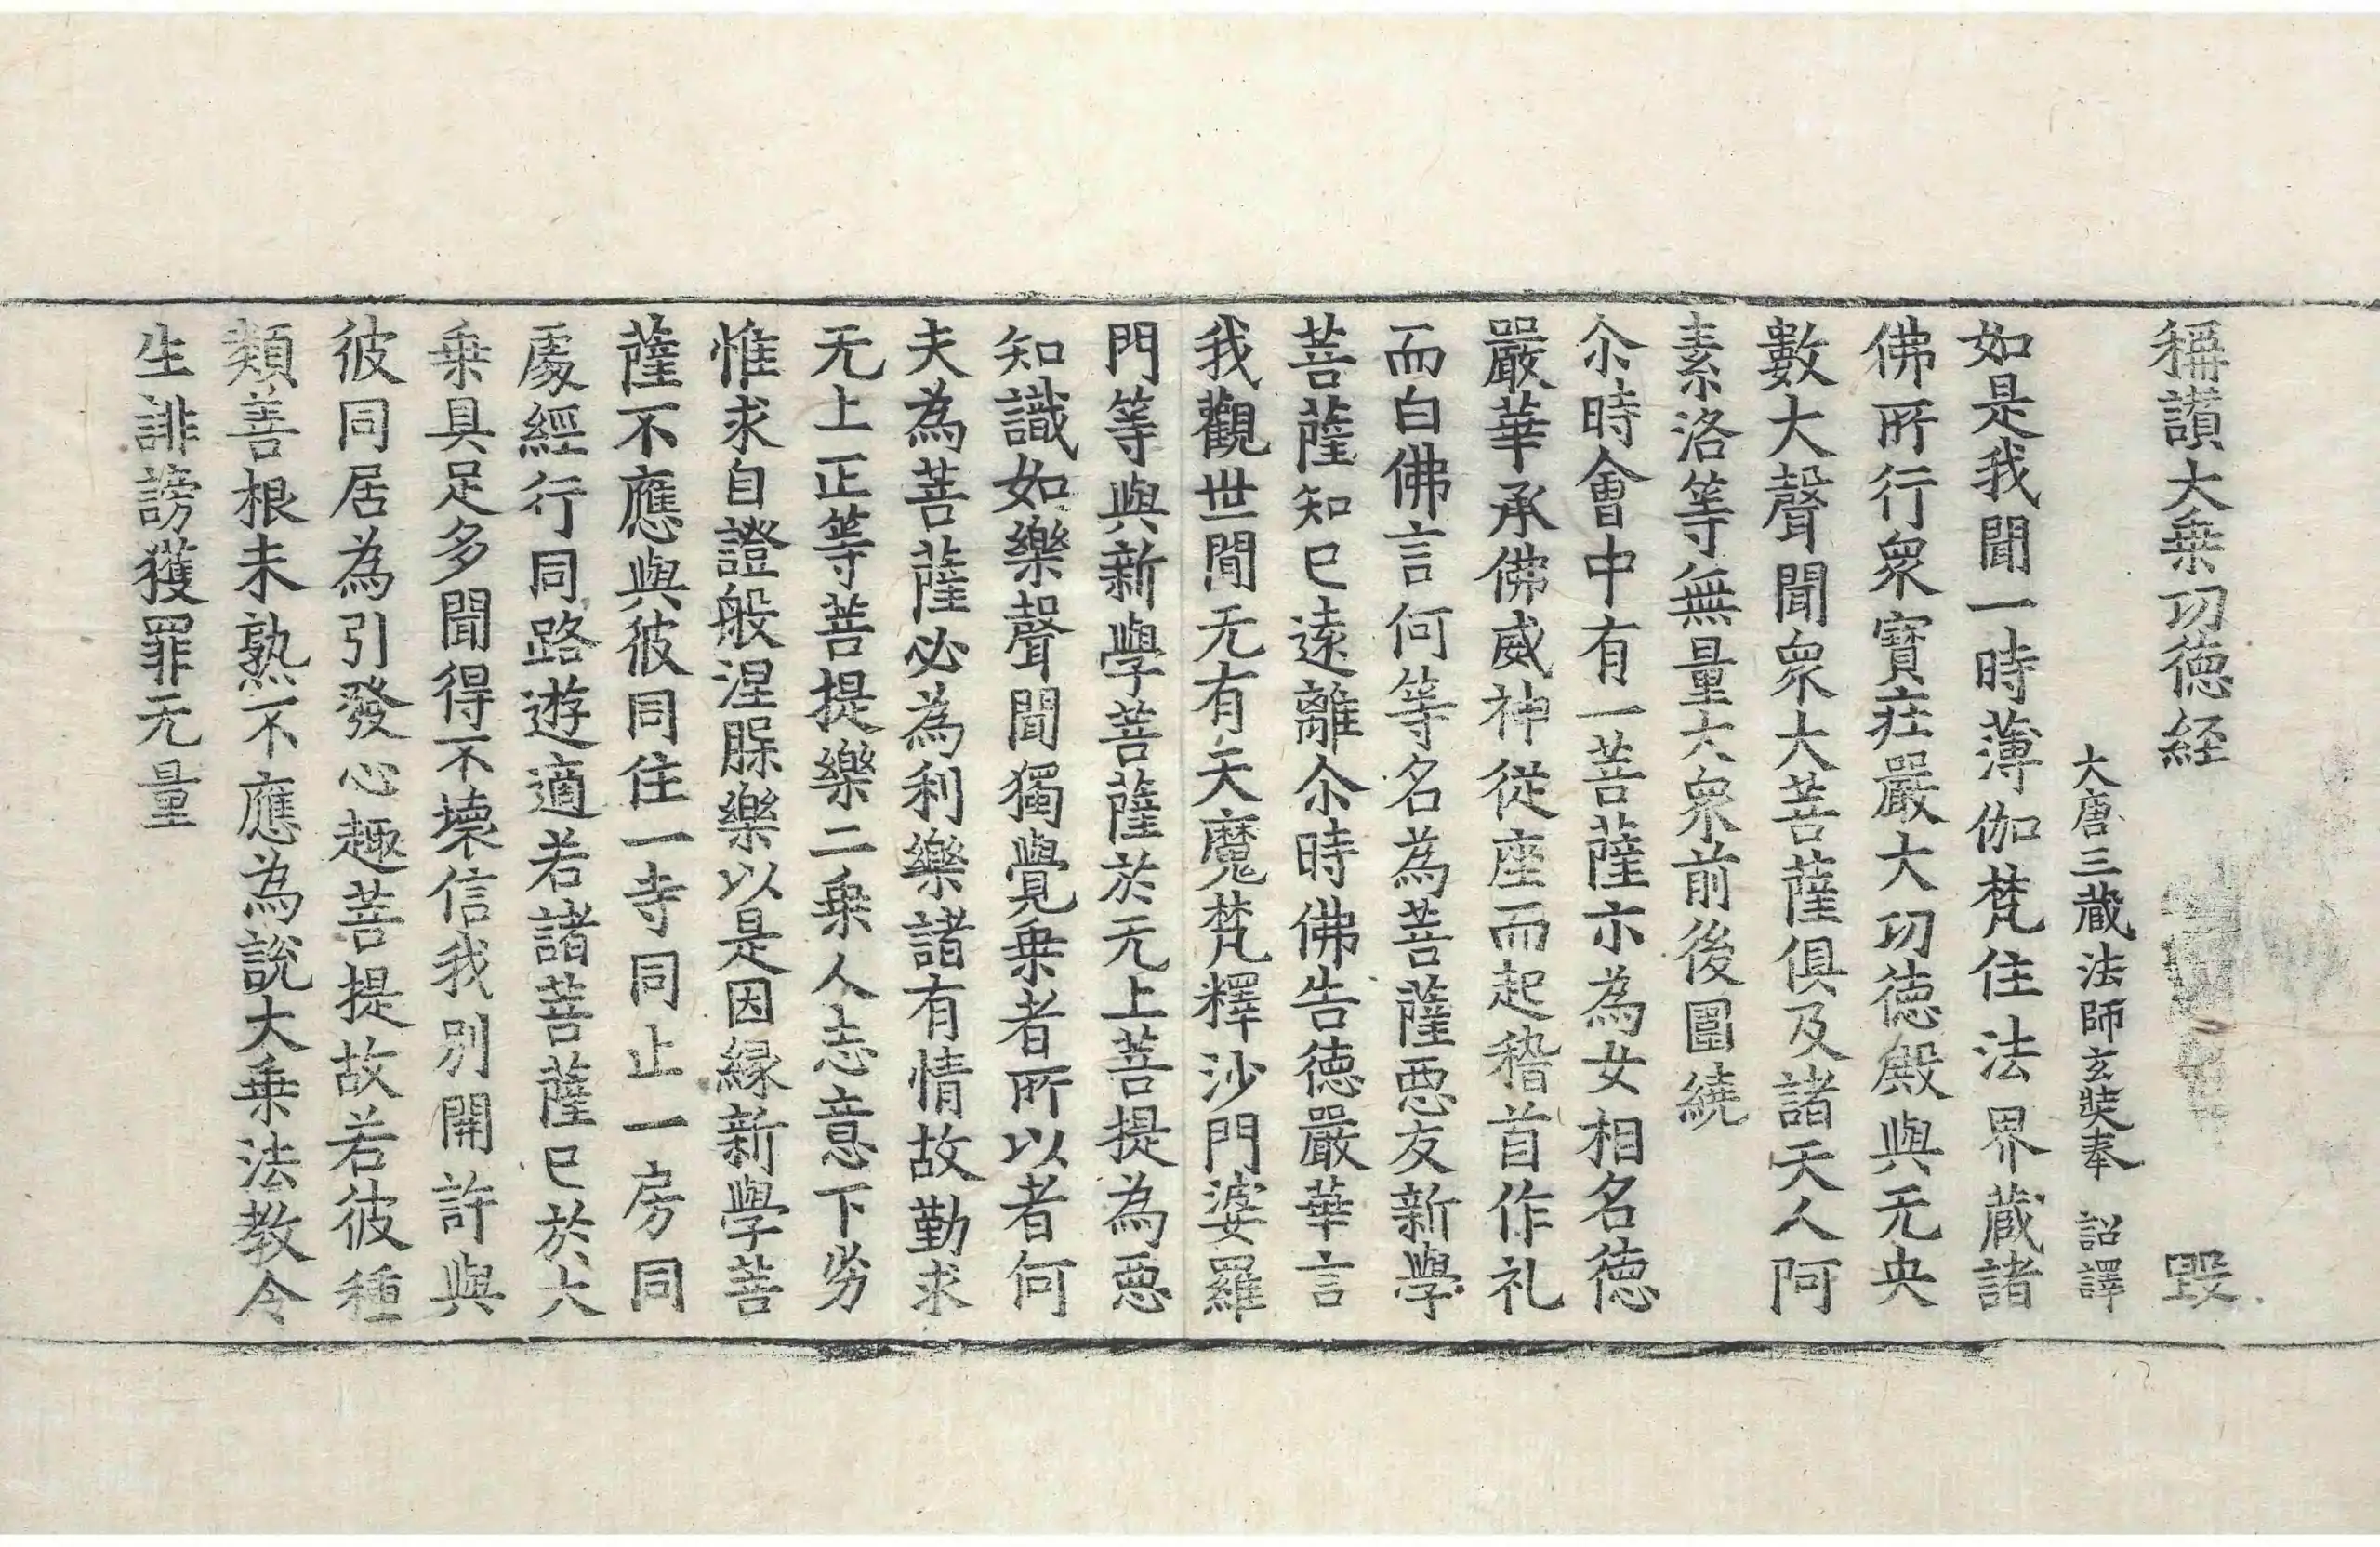 稱讚大乗功徳経 毀
大唐三蔵法師玄奘奉 詔譯
如是我聞一時薄伽梵住法界蔵諸
佛所行衆寳荘嚴大功徳殿與无央
數大聲聞衆大菩薩俱及諸天人阿
素洛等無量大衆前後圍繞
尒時會中有一菩薩亦為女相名徳
嚴華承佛威神從座而起稽首作礼
而白佛言何等名為菩薩悪友新學
菩薩知已遠離尒時佛告徳嚴華言
我觀世間无有天魔梵釋沙門婆羅
門等與新學菩薩於无上菩提為悪
知識如樂聲聞獨覺乗者所以者何
夫為菩薩必為利樂諸有情故勤求
无上正等菩提樂二乗人志意下劣
惟求自證般涅縣樂以是因縁新學菩
薩不應與彼同住一寺同止一房同
處經行同路遊適若諸菩薩已於大
乗具足多聞得不壊信我別開許與
彼同居為引發心趣菩提故若彼種
類善根未熟不應為說大乗法教令
生誹謗獲罪无量